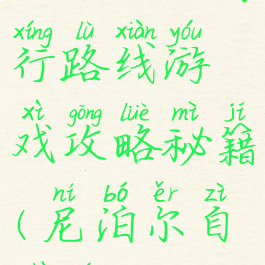 xíng lù xiàn yóu
行路线游
xì gōng lüè mì jí
戏攻略秘籍
ní bó ěr zì
(尼泊尔自